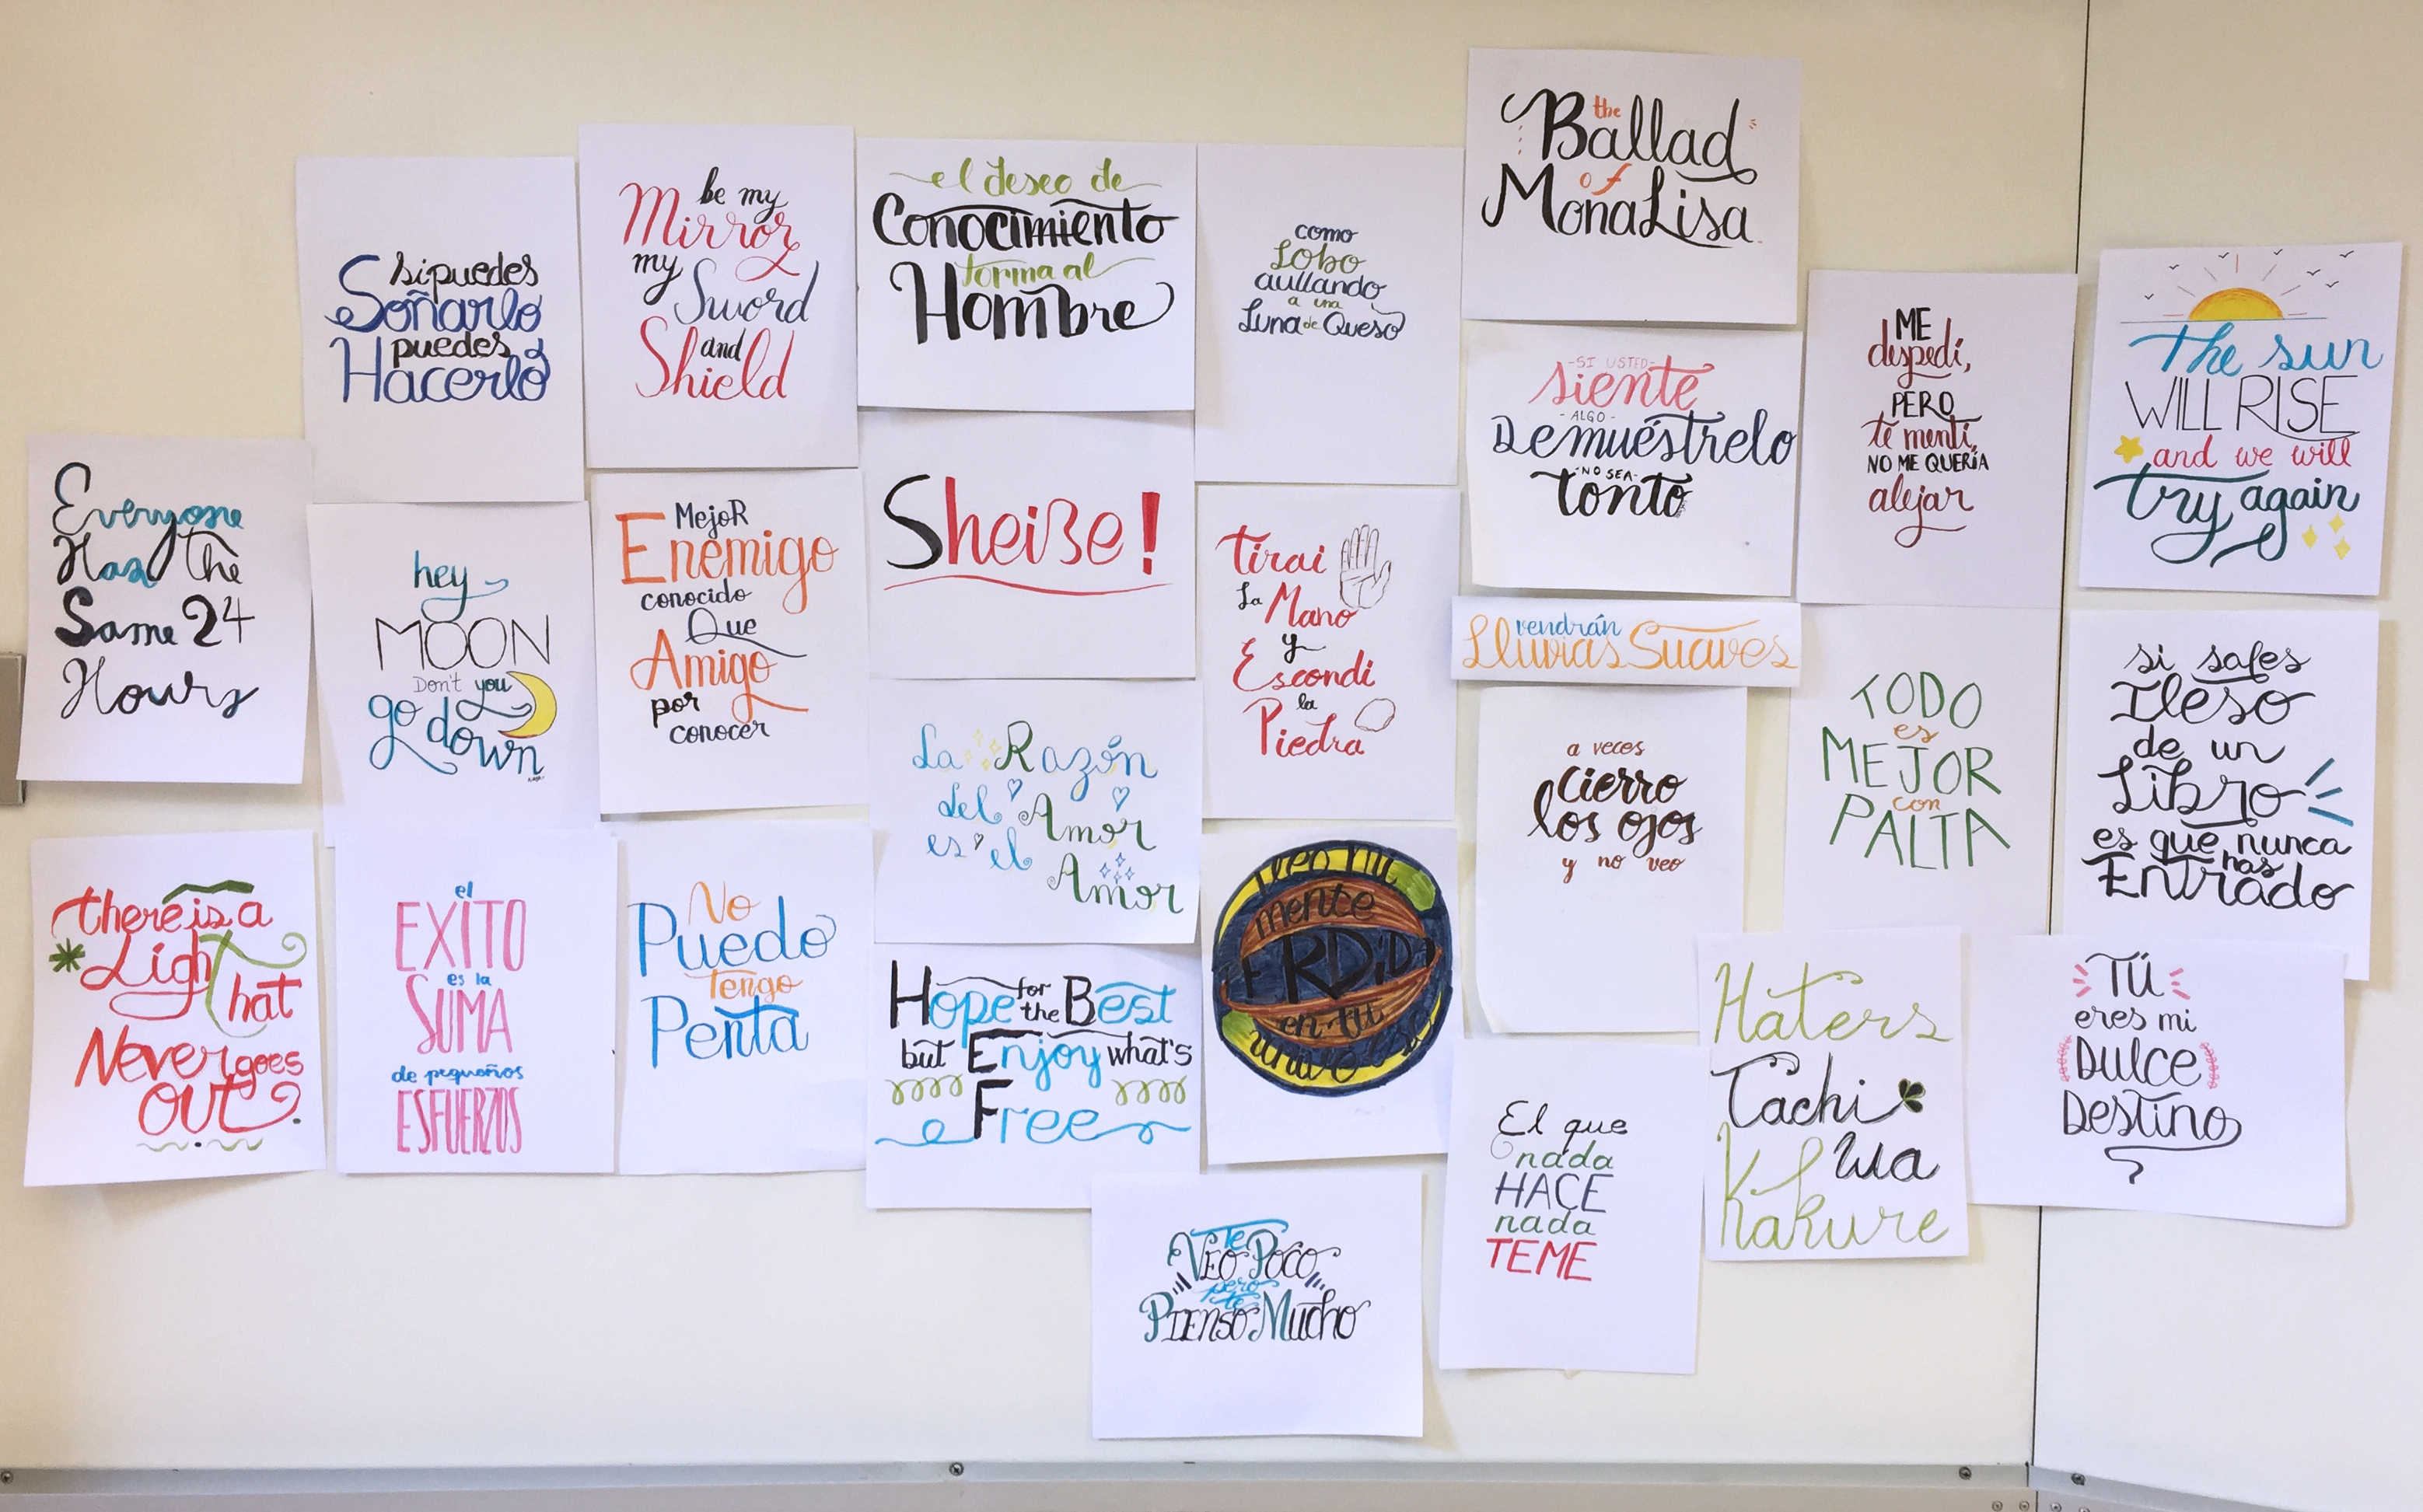 the
Ballad
of
MonaLisa
si puedes
Soñarlo
puedes
Hacerlo
be my
Mirror
my
Sword
and
Shield
el deseo de
Conocimiento
torma al
Hombre
como
Lobo
aullando
a una
Luna de Queso
-SI USTED-
siente
-ALGO-
Demuéstrelo
-NO SEA-
tonto
ME
despedí,
PERO
te mentí,
NO ME QUERÍA
alejar
The sun
WILL RISE
and we will
try again
Everyone
Has the
Same 24
Hours
hey
MOON
Don't you
go down
MejoR
Enemigo
conocido
Que
Amigo
por
conocer
Sheiße!
Tirai
La Mano
y
Escondi
la
Piedra
vendrán
Lluvias Suaves
La Razón
del Amor
es el
Amor
a veces
cierro
los ojos
y no veo
TODO
es
MEJOR
con
PALTA
si sales
Ileso
de un
Libro
es que nunca
has
Entrado
there is a
Light
hat
Never goes
OUT
el
EXITO
es la
SUMA
de pequeños
ESFUERZOS
No
Puedo
Tengo
Penta
Hope for the Best
but Enjoy what's
Free
mente
en tu
Haters
Tachi
wa
Kakure
TÚ
eres mi
Dulce
Destino
El que
nada
HACE
nada
TEME
Te
Veo Poco
pero
te
Pienso Mucho